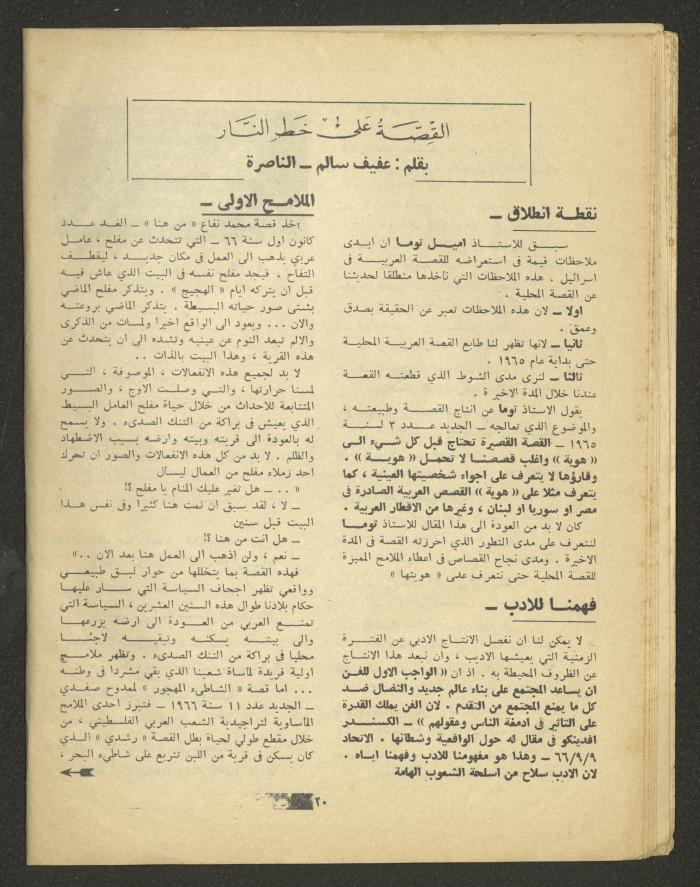 القصة على خط النار
بقلم : عفيف سالم ــ الناصرة
نقطة انطلاق ــ
سبق للاستاذ اميل توما ان ابدى
ملاحظات قيمة في استعراضه للقصة العربية في
اسرائيل . هذه الملاحظات التي نأخذها منطلقا لحديثنا
عن القصة المحلية .
اولا ــ لان هذه الملاحظات تعبر عن الحقيقة بصدق
وعمق .
ثانيا ــ لانها تظهر لنا طابع القصة العربية المحلية
حتى بداية عام ١٩٦٥ .
ثالثا ــ لنرى مدى الشوط الذي قطعته القصة
عندنا خلال المدة الاخيرة .
يقول الاستاذ توما عن انتاج القصة وطبيعته ،
والموضوع الذي تعالجه ــ الجديد عدد ٣ لسنة
١٩٦٥ ــ القصة القصيرة تحتاج قبل كل شيء الى
« هوية » واغلب قصصنا لا تحمل « هوية » .
وقارؤها لا يتعرف على اجواء شخصيتها العينية ، كما
يتعرف مثلا على « هوية » القصص العربية الصادرة في
مصر او سوريا او لبنان ، وغيرها من الاقطار العربية .
كان لا بد من العودة الى هذا المقال للاستاذ توما
لنتعرف على مدى التطور الذي احرزته القصة في المدة
الاخيرة . ومدى نجاح القصاص في اعطاء الملامح المميزة
للقصة المحلية حتى نتعرف على « هويتها »
فهمنا للادب ــ
لا يمكن لنا ان نفصل الانتاج الادبي عن الفترة
الزمنية التي يعيشها الاديب ، وان نبعد هذا الانتاج
عن الظروف المحيطة به . اذ ان « الواجب الاول للفن
ان يساعد المجتمع على بناء عالم جديد والنضال ضد
كل ما يمنع المجتمع من التقدم . لان الفن يملك القدرة
على التاثير في ادمغة الناس وعقولهم » ــ الكسندر
افدينكو في مقال له حول الواقعية وشطآنها . الاتحاد
٦٦/٩/٩ ــ وهذا هو مفهومنا للادب وفهمنا اياه .
لان الادب سلاح من اسلحة الشعوب الهامة
الملامح الاولى ــ
آخذ قصة محمد نفاع « من هنا » ــ الغد عدد
كانون اول سنة ٦٦ ــ التي تتحدث عن مفلح ، عامل
عربي يذهب الى العمل في مكان جديد ، ليقطف
التفاح . فيجد مفلح نفسه في البيت الذي عاش فيه
قبل ان يتركه ايام « الهجيج » . ويتذكر مفلح الماضي
بشتى صور حياته البسيطة . يتذكر الماضي بروعته
والان ... ويعود الى الواقع اخيرا ولمسات من الذكرى
والالم تبعد النوم عن عينيه وتشده الى ان يتحدث عن
هذه القرية ، وهذا البيت بالذات ..
لا بد لجميع هذه الانفعالات ، الموصوفة ، التي
لمسنا حرارتها ، والتي وصلت الاوج ، والصور
المتتابعة للاحداث من خلال حياة مفلح العامل البسيط
الذي يعيش في براكة من التنك الصدىء . ولا يسمح
له بالعودة الى قريته وبيته وارضه بسبب الاضطهاد
والظلم . لا بد من كل هذه الانفعالات والصور ان تحرك
احد زملاء مفلح من العمال ليسال
« .. ــ هل تغير عليك المنام يا مفلح ؟!
ــ لا ، لقد سبق ان نمت هنا كثيرا وفى نفس هذا
البيت قبل سنين
ــ هل انت من هنا ؟!
ــ نعم ، ولن اذهب الى العمل هنا بعد الان .. »
فهذه القصة بما يتخللها من حوار لبق طبيعي
وواقعي تظهر اجحاف السياسة التي سار عليها
حكام بلادنا طوال هذه السنين العشرين ، السياسة التي
تمنع العربي من العودة الى ارضه يزرعها
والى بيته يسكنه وتبقيه لاجئا
محليا في براكة من التنك الصدىء . وتظهر ملامح
اولية فريدة لماساة شعبنا الذي بقي مشردا في وطنه
... اما قصة « الشاطىء المهجور » لممدوح صفدي
ــ الجديد عدد ١١ سنة ١٩٦٦ ــ فتبرز احدى الملامح
الماساوية لتراجيدية الشعب العربي الفلسطيني ، من
خلال مقطع طولي لحياة بطل القصة « رشدي » الذي
كان يسكن في قرية من اللبن تتربع على شاطيء البحر ،
٢٠